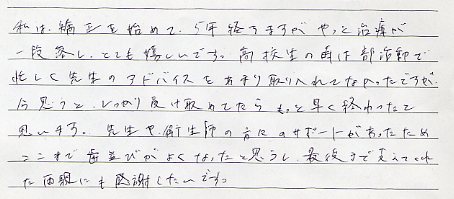 私は、矯正を始めて、5年経ちますが やっと治療が
一段落し、とても嬉しいです。高校生の時は部活動で
忙しく先生のアドバイスをあまり取り入れてなかったですが、
今思うと、しっかり受け止めてたら もっと早く終わったと
思います。先生や衛生師の方々のサポートがあったため
ここまで歯並びがよくなったと思うし、最後まで支えてくれ
た両親にも感謝したいです。